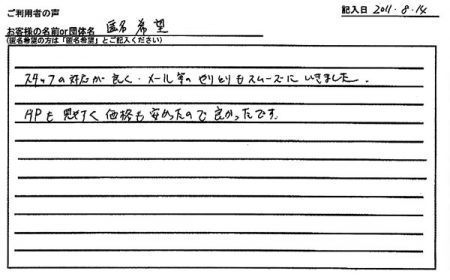 ご利用者の声
記入日 2011.8.14
お客様の名前or団体名 匿名希望
(匿名希望の方は「匿名希望」とご記入ください)
スタッフの対応が良く、メール等のやりとりもスムーズにいきました。
HPも見やすく価格も安かったので良かったです。